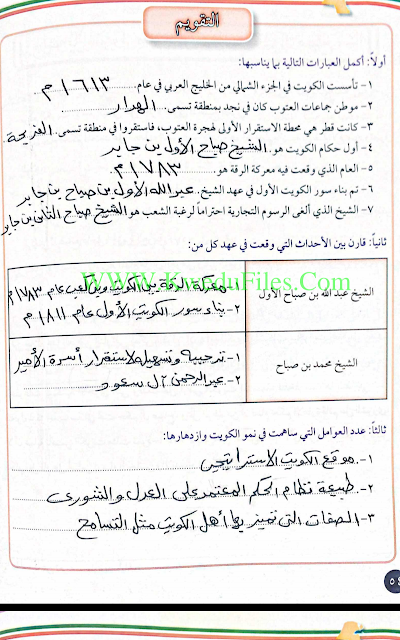 التقويم
أولاً: أكمل العبارات التالية بما يناسبها:
١- تأسست الكويت في الجزء الشمالي من الخليج العربي في عام ١٦١٣م
٢- موطن جماعات العتوب كان في نجد بمنطقة تسمى الهدار
٣- كانت قطر هي محطة الاستقرار الأولى لهجرة العتوب، فاستقروا في منطقة تسمى الفريحة
٤- أول حكام الكويت هو الشيخ صباح الأول بن جابر
٥- العام الذي وقعت فيه معركة الرقة هو ١٧٨٣م
٦- تم بناء سور الكويت الأول في عهد الشيخ عبدالله الأول بن صباح بن جابر
٧- الشيخ الذي ألغى الرسوم التجارية احتراماً لرغبة الشعب هو الشيخ صباح الثاني بن جابر
ثانياً: قارن بين الأحداث التي وقعت في عهد كل من:
WWW.KweduFiles.Com
الشيخ عبدالله بن صباح الأول
١- معركة الرقة بين الكويت وبني كعب عام ١٧٨٣م
٢- بناء سور الكويت الأول عام ١٨١١م
الشيخ محمد بن صباح
١- ترحيبه وتسهيله لاستقرار أسرة الأمير
٢- عبدالرحمن آل سعود
ثالثاً: عدد العوامل التي ساهمت في نمو الكويت وازدهارها:
١- موقع الكويت الاستراتيجي
٢- طبيعة نظام الحكم المعتمد على العدل والشورى
٣- الصفات التي تميز بها أهل الكويت مثل التسامح